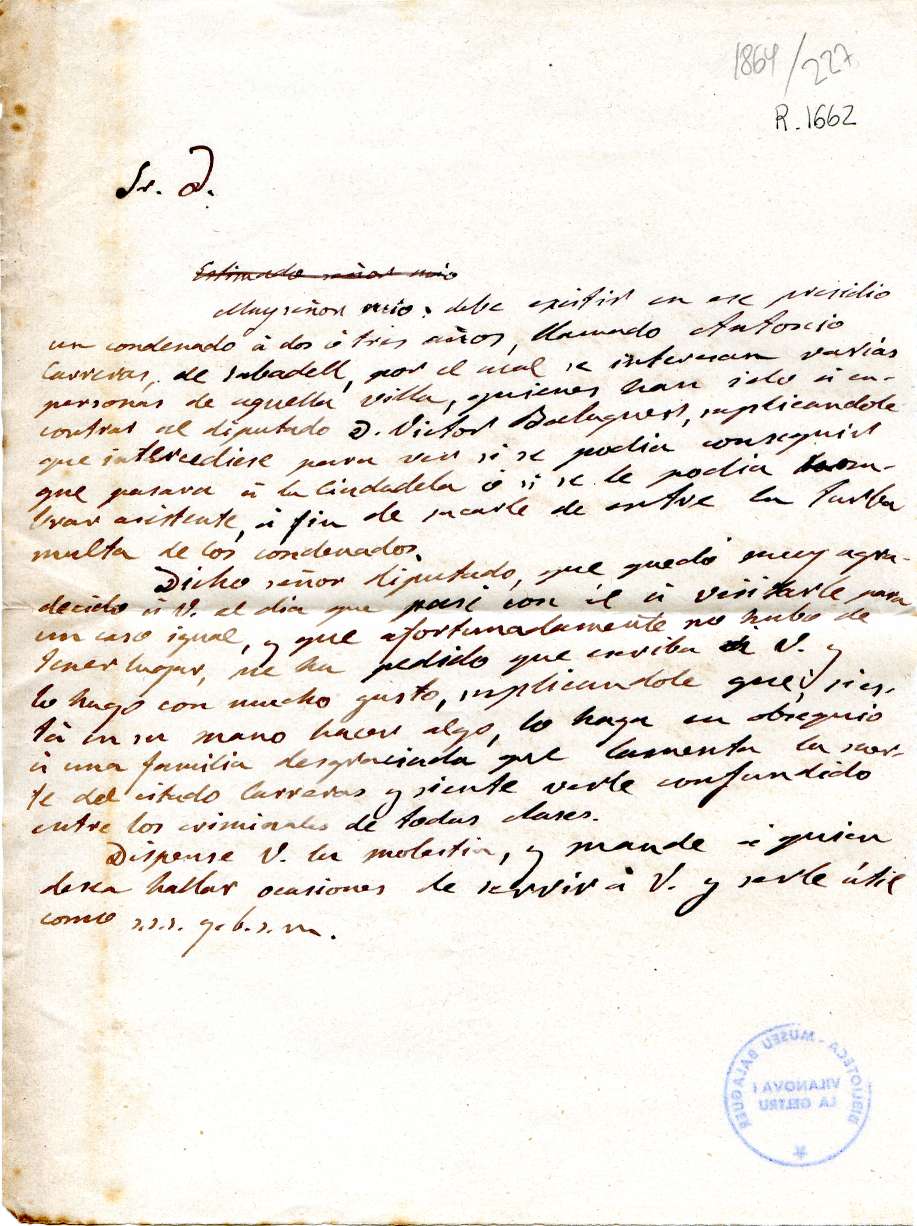 1864/227
R. 1662
Sr. D.
Estimado señor mio
Muy señor mio: debe existir en ese presidio
un condenado á dos ó tres años, llamado Antonio
Carreras, de Sabadell, por el cual se interesan varias
personas de aquella villa, quienes han ido á en-
contrar al diputado D. Victor Balaguer, suplicandole
que intercediese para ver si se podia conseguir
que pasara á la Ciudadela ó si se le podia nom-
brar asistente, á fin de sacarle de entre la turba
multa de los condenados.
Dicho señor diputado, que quedó muy agra-
decido á V. el dia que pasé con él á visitarle para
un caso igual, y que afortunadamente no hubo de
tener lugar, me ha pedido que escriba á V. y
lo hago con mucho gusto, suplicandole que, si es-
tá en su mano hacer algo, lo haga en obsequio
á una familia desgraciada que lamenta la suer-
te del citado Carreras y siente verle confundido
entre los criminales de todas clases.
Dispense V. la molestia, y mande á quien
desea hallar ocasiones de servir á V. y serle útil
como s.s.s. q. b. s. m.
BIBLIOTECA - MUSEU BALAGUER
VILANOVA I
LA GELTRU